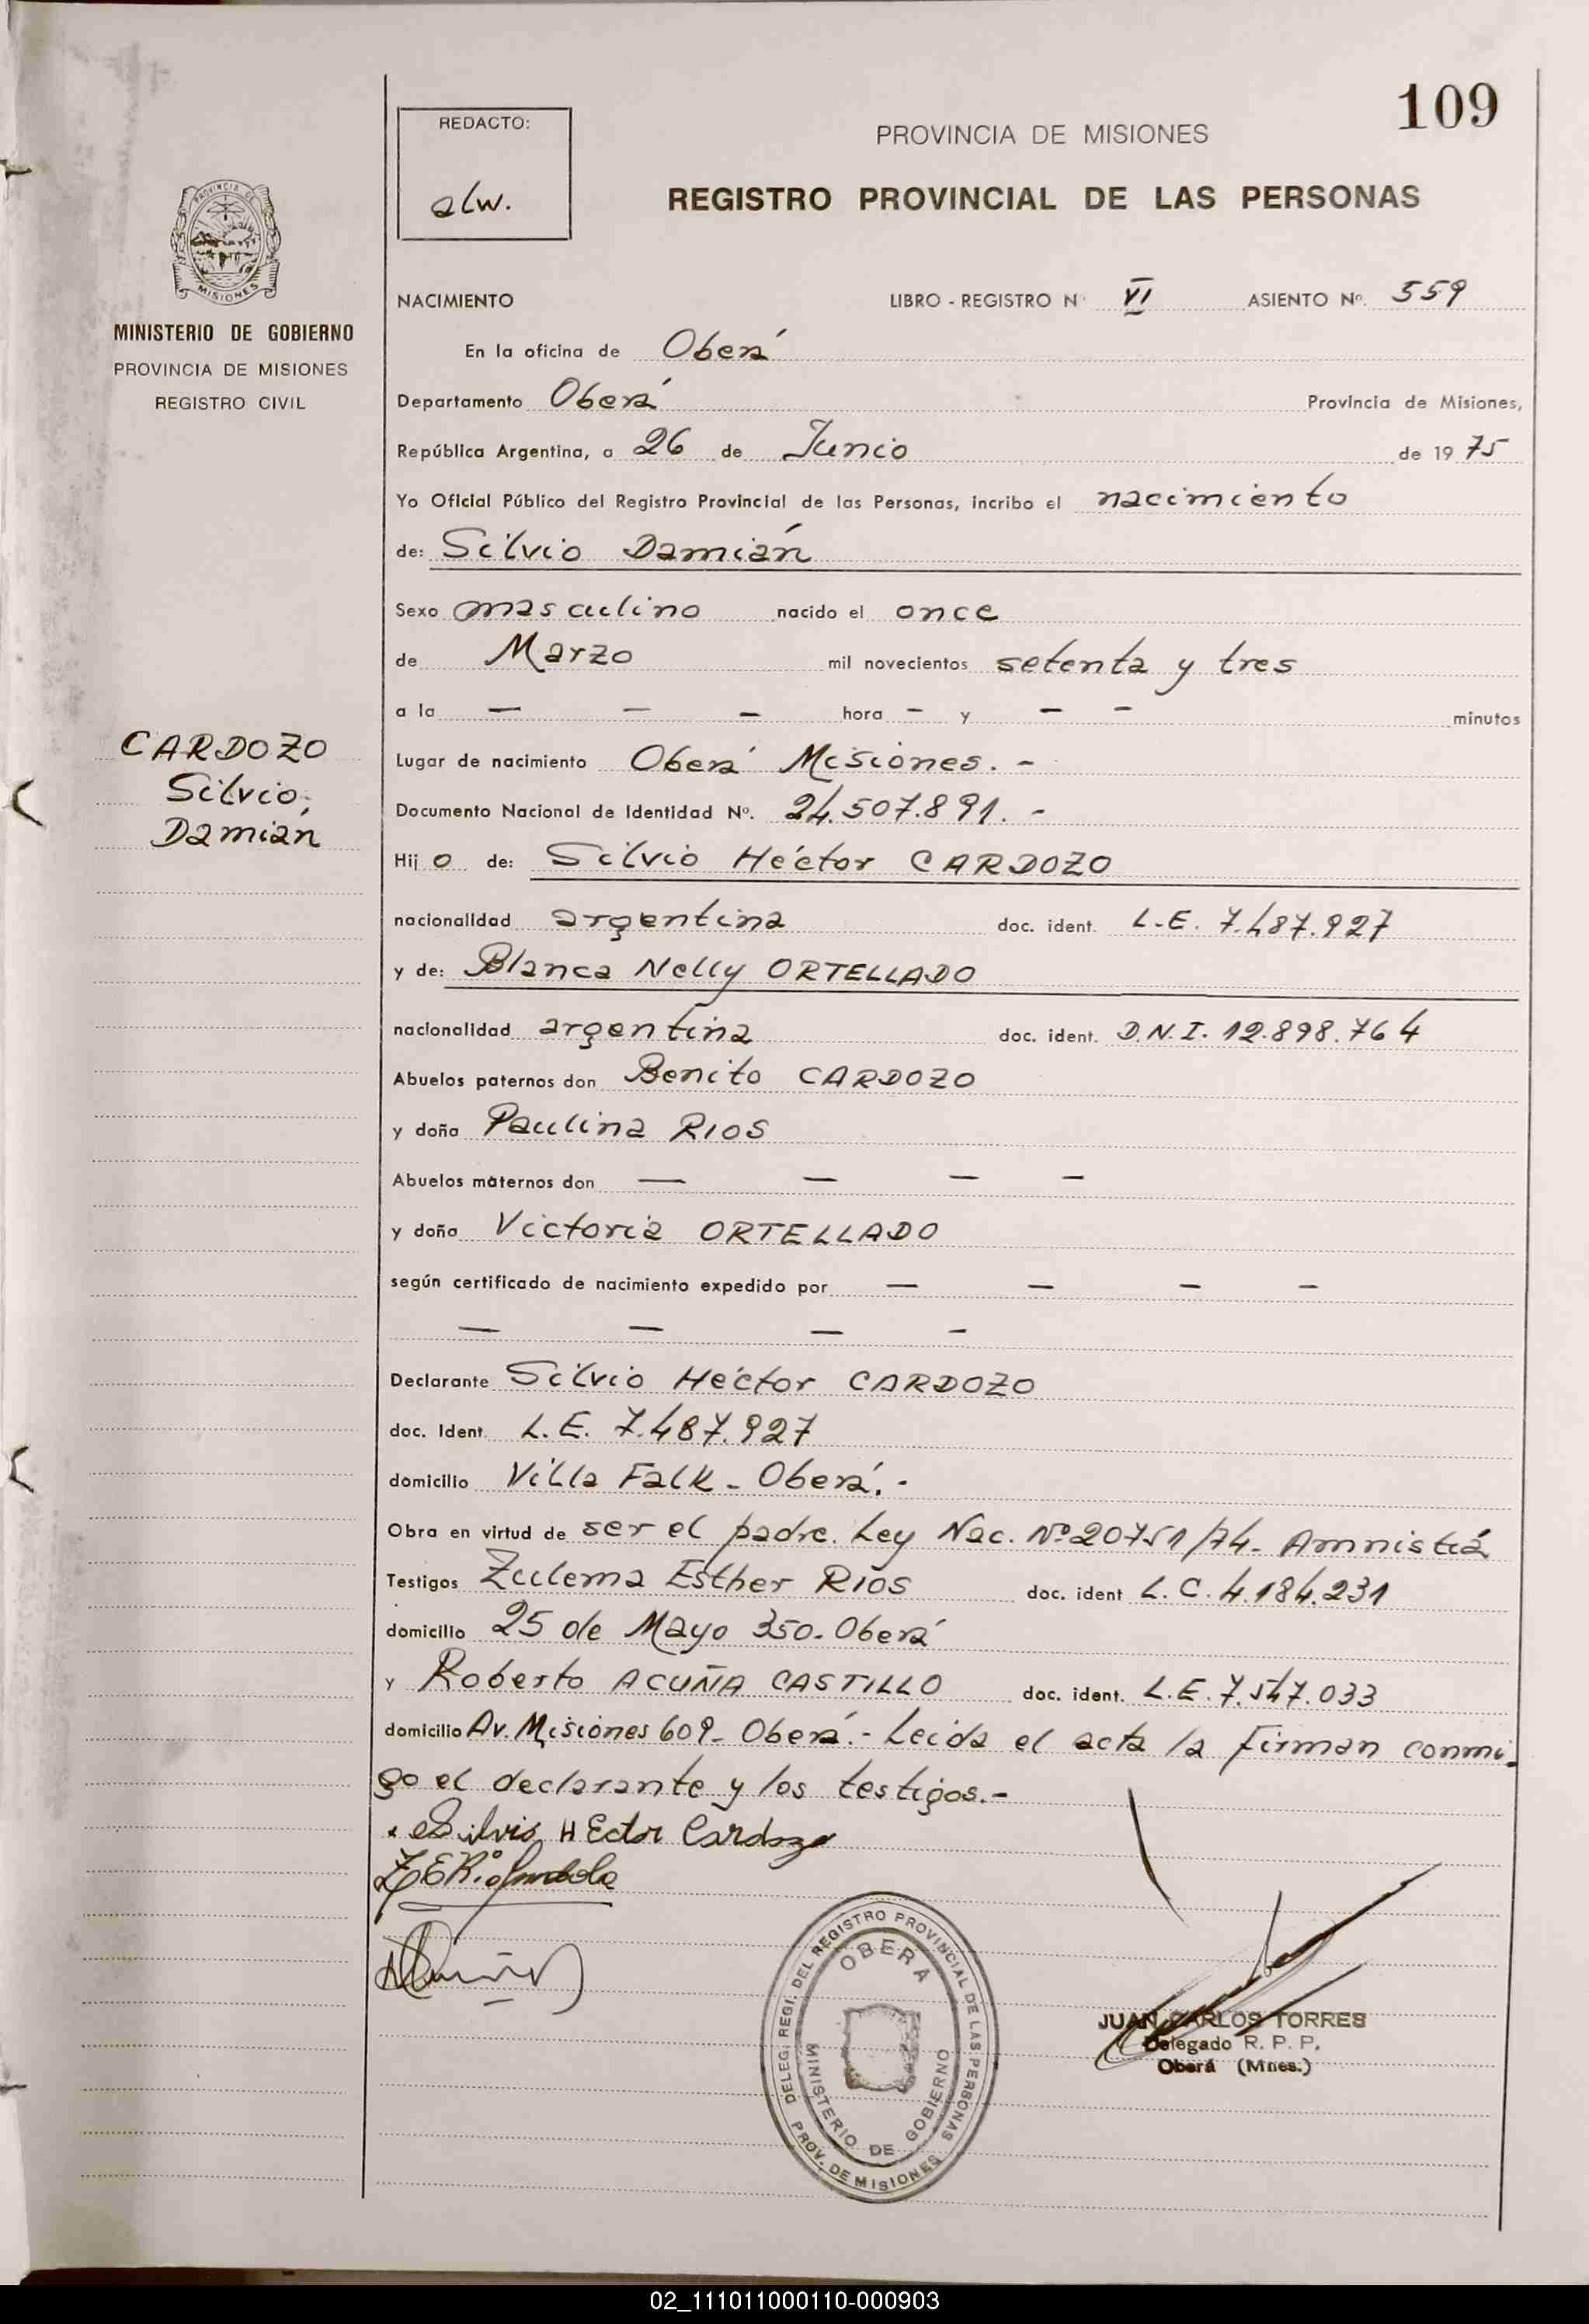 109
REDACTO:
alw.
PROVINCIA DE MISIONES
REGISTRO PROVINCIAL DE LAS PERSONAS
PROVINCIA DE
MISIONES
MINISTERIO DE GOBIERNO
PROVINCIA DE MISIONES
REGISTRO CIVIL
NACIMIENTO LIBRO - REGISTRO Nº VI ASIENTO Nº. 559
En la oficina de Oberá
Departamento Oberá Provincia de Misiones,
República Argentina, a 26 de Junio de 19 75
Yo Oficial Público del Registro Provincial de las Personas, incribo el nacimiento
de: Silvio Damián
Sexo masculino nacido el once
de Marzo mil novecientos setenta y tres
a la — — — hora — y — — minutos
Lugar de nacimiento Oberá Misiones. -
Documento Nacional de Identidad Nº. 24.507.891. -
Hij o de: Silvio Héctor CARDOZO
nacionalidad argentina doc. ident. L.E. 7.487.927
y de: Blanca Nelly ORTELLADO
nacionalidad argentina doc. ident. D.N.I. 12.898.764
Abuelos paternos don Benito CARDOZO
y doña Paulina RIOS
Abuelos maternos don — — — —
y doña Victoria ORTELLADO
según certificado de nacimiento expedido por — — — —
— — — -
Declarante Silvio Héctor CARDOZO
doc. Ident. L.E. 7.487.927
domicilio Villa Falk - Oberá. -
Obra en virtud de ser el padre. Ley Nac. Nº 20751/74 - Amnistiá
Testigos Zulema Esther RIOS doc. ident L.C. 4.184.231
domicilio 25 de Mayo 350 - Oberá
y Roberto ACUÑA CASTILLO doc. ident. L.E. 7.547.033
domicilio Av. Misiones 609 - Oberá. - Leida el acta la firman conmi-
go el declarante y los testigos.-
Silvio HEctor Cardozo
CARDOZO
Silvio,
Damián
DELEG. REGI. DEL REGISTRO PROVINCIAL DE LAS PERSONAS
PROV. DE MISIONES
OBERA
MINISTERIO DE GOBIERNO
JUAN CARLOS TORRES
Delegado R. P. P.
Oberá (Mnes.)
02_111011000110-000903